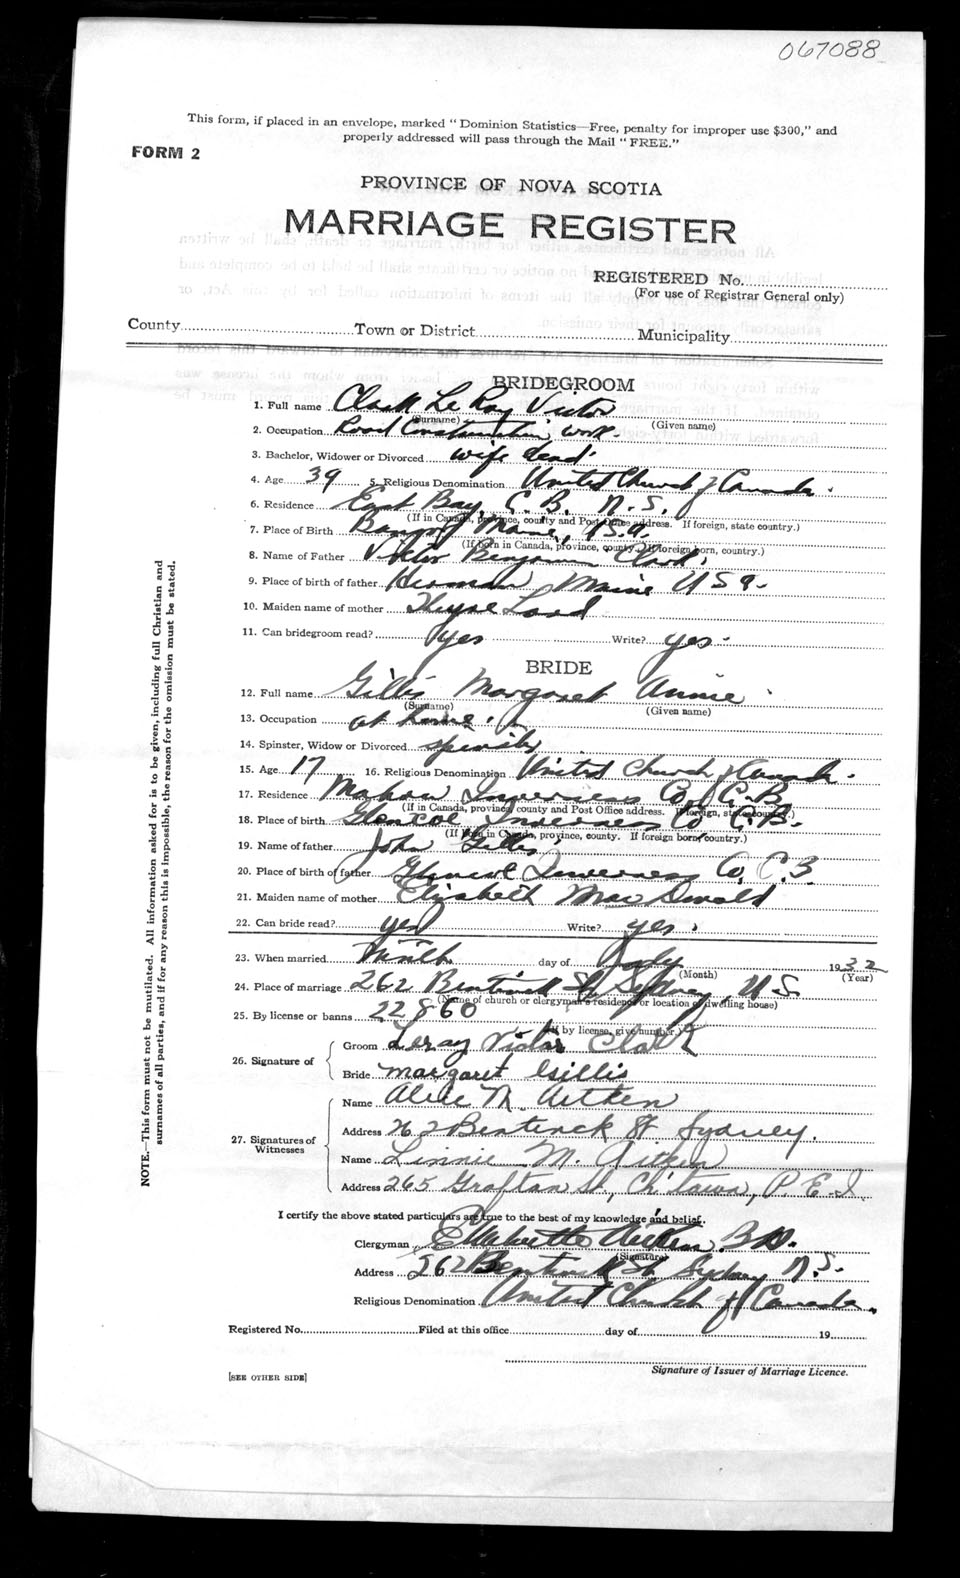 067088
This form, if placed in an envelope, marked "Dominion Statistics—Free, penalty for improper use $300," and
properly addressed will pass through the Mail "FREE."
FORM 2
PROVINCE OF NOVA SCOTIA
MARRIAGE REGISTER
REGISTERED No.
(For use of Registrar General only)
County Town or District Municipality
BRIDEGROOM
1. Full name Clark Le Roy Victor
(Surname) (Given name)
2. Occupation Road Construction work.
3. Bachelor, Widower or Divorced wife dead.
4. Age 39 5. Religious Denomination United Church of Canada.
6. Residence East Bay, C. B. N. S.
(If in Canada, province, county and Post Office address. If foreign, state country.)
7. Place of Birth Bangor, Maine, U.S.A.
(If born in Canada, province, county. If foreign born, country.)
8. Name of Father Victor Benjamin Clark.
9. Place of birth of father Herman, Maine U S A.
10. Maiden name of mother Lord
11. Can bridegroom read? yes Write? yes.
BRIDE
12. Full name Gillis Margaret Annie
(Surname) (Given name)
13. Occupation at home.
14. Spinster, Widow or Divorced spinster
15. Age 17 16. Religious Denomination United Church of Canada.
17. Residence Mabou Inverness Co. C. B.
(If in Canada, province, county and Post Office address. If foreign, state country.)
18. Place of birth Glencoe Inverness Co C.B.
(If born in Canada, province, county. If foreign born, country.)
19. Name of father John Gillis
20. Place of birth of father Glencoe Inverness Co, C.B.
21. Maiden name of mother Elizabeth MacDonald
22. Can bride read? yes Write? yes.
23. When married Ninth day of July 1932
(Month) (Year)
24. Place of marriage 262 Bentinck St, Sydney, N S
(Name of church or clergyman's residence or location of dwelling house)
25. By license or banns 22860
(If by license, give number.)
26. Signature of
Groom Leroy Victor Clark
Bride Margaret Gillis
27. Signatures of Witnesses
Name M. Aitken
Address 262 Bentinck St Sydney.
Name Linnie M. Aitken
Address 265 Grafton St, Ch'town, P. E. I.
I certify the above stated particulars are true to the best of my knowledge and belief.
Clergyman Aitken. B.D.
(Signature)
Address 262 Bentinck St Sydney N.S.
Religious Denomination United Church of Canada.
Registered No. Filed at this office day of 19
Signature of Issuer of Marriage Licence.
[SEE OTHER SIDE]
NOTE.—This form must not be mutilated. All information asked for is to be given, including full Christian and
surnames of all parties, and if for any reason this is impossible, the reason for the omission must be stated.